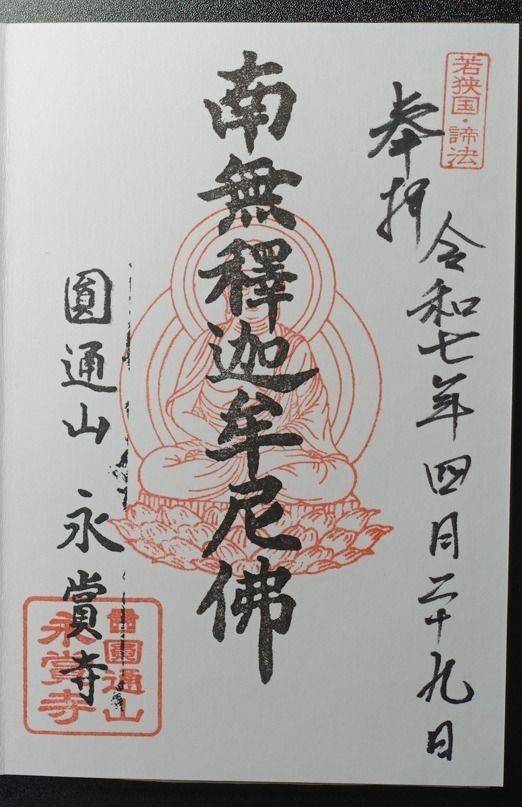 若狭国・諦法
奉拝
令和七年四月二十九日
南無釋迦牟尼佛
圓通山 永賞寺
曹洞圓通山
永賞寺